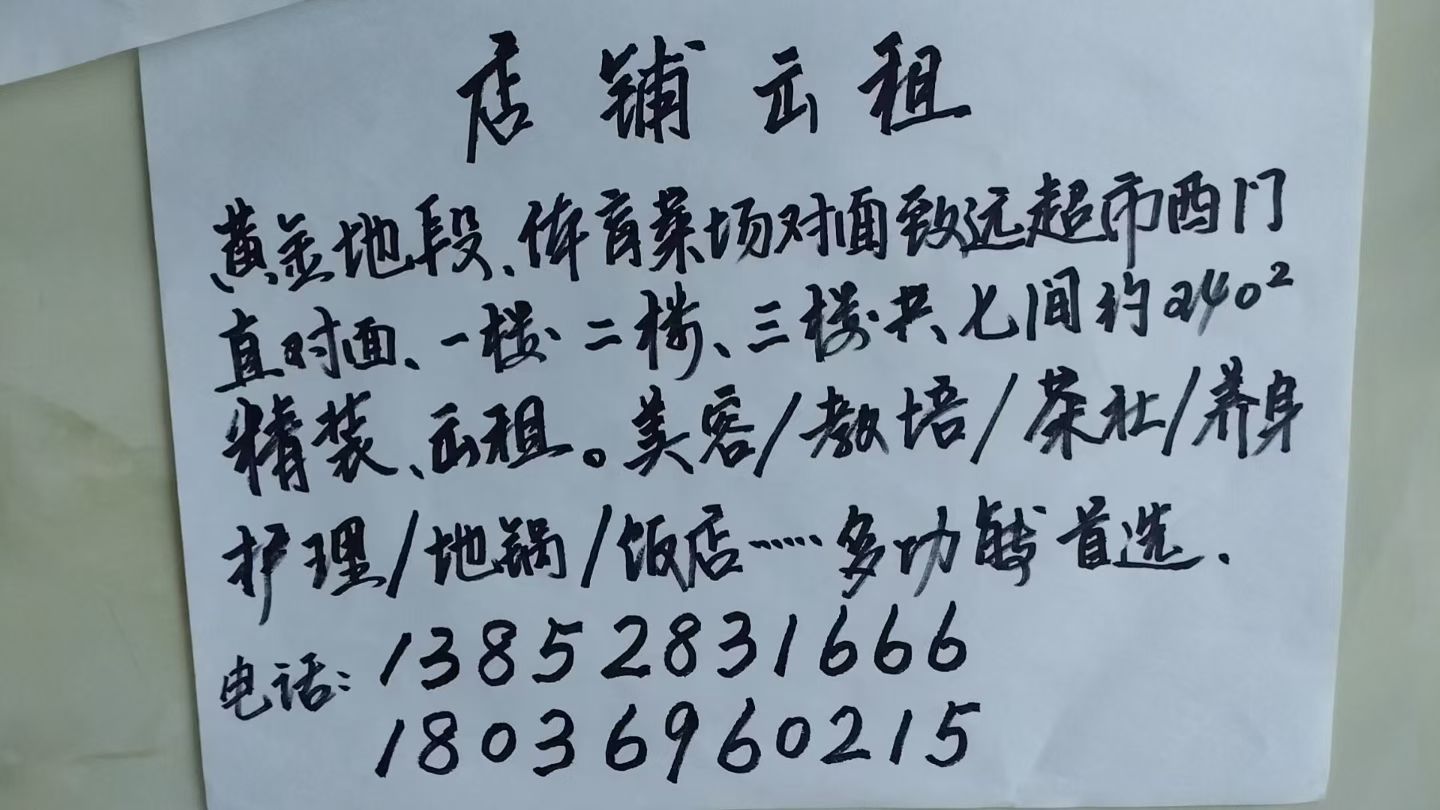 店铺出租
黄金地段、体育菜场对面致远超市西门
直对面、一楼、二楼、三楼共七间约240²
精装、出租。美容/教培/茶社/养身
护理/地锅/饭店……多功能首选.
电话:13852831666
18036960215